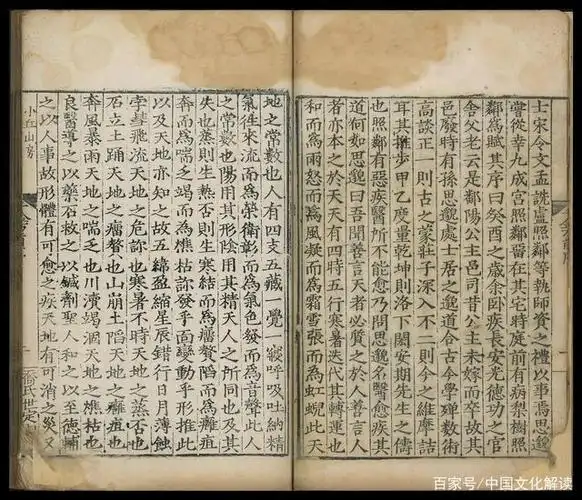 士宋令文孟詵盧照鄰等執師資之禮以事焉思邈
嘗從幸九成宮照鄰留在其宅時庭前有病梨樹照
鄰爲賦其序曰癸酉之歲余卧疾長安光德功之官
舍父老云是鄱陽公主邑司昔公主未嫁而卒故其
邑廢時有孫思邈處士居之邈道合古今學殫數術
高談正一則古之蒙莊子深入不二則今之維摩詰
耳其推步甲乙度量乾坤則洛下閎安期先生之儔
也照鄰有惡疾醫所不能愈乃問思邈名醫愈疾其
道何如思邈曰吾聞善言天者必質之於人善言人
者亦本之於天天有四時五行寒暑迭代其轉運也
和而爲雨怒而爲風凝而爲霜雪張而爲虹蜺此天
地之常數也人有四支五藏一覺一寢呼吸吐納精
氣往來流而爲榮衛彰而爲氣色發而爲音聲此人
之常數也陽用其形陰用其精天人之所同也及其
失也蒸則生熱否則生寒結而爲瘤贅陷而爲癰疽
奔而爲喘乏竭而爲樵枯診發乎面變動乎形推此
以及天地亦知之故五緯盈縮星辰錯行日月薄蝕
孛彗飛流天地之危診也寒暑不時天地之蒸否也
石立土踊天地之瘤贅也山崩土陷天地之癰疽也
奔風暴雨天地之喘乏也川瀆竭涸天地之樵枯也
良醫導之以藥石救之以鍼劑聖人和之以至德輔
之以人事故形體有可愈之疾天地有可消之災又
小丘山房
百家号/中国文化解读